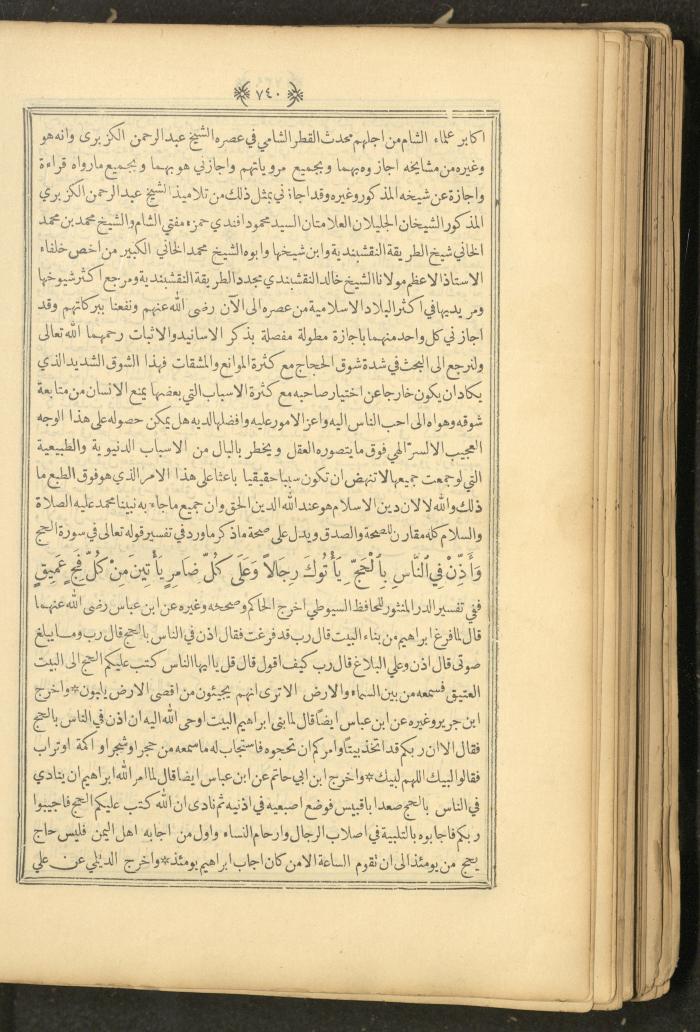 ﴿ ٧٤٠ ﴾
اكابر علماء الشام من اجلهم محدث القطر الشامي في عصره الشيخ عبد الرحمن الكزبرى وانه هو
وغيره من مشايخه اجازوه بهما وبجميع مروياتهم واجازني هو بهما وبجميع مارواه قراءة
واجازة عن شيخه المذكور وغيره وقد اجازني بمثل ذلك من تلاميذ الشيخ عبد الرحمن الكزبري
المذكور الشيخان الجليلان العلامتان السيد محمود افندي حمزه مفتي الشام والشيخ محمد بن محمد
الخاني شيخ الطريقة النقشبندية وابن شيخها وابوه الشيخ محمد الخاني الكبير من اخص خلفاء
الاستاذ الاعظم مولانا الشيخ خالد النقشبندي مجدد الطريقة النقشبندية ومرجع اكثر شيوخها
ومريديها في اكثر البلاد الاسلامية من عصره الى الآن رضى الله عنهم ونفعنا ببركاتهم وقد
اجازني كل واحد منهما باجازة مطولة مفصلة بذكر الاسانيد والاثبات رحمهما الله تعالى
ولنرجع الى البحث في شدة شوق الحجاج مع كثرة الموانع والمشقات فهذا الشوق الشديد الذي
يكاد ان يكون خارجا عن اختيار صاحبه مع كثرة الاسباب التي بعضها يمنع الانسان من متابعة
شوقه وهواه الى احب الناس اليه واعز الامور عليه وافضلها لديه هل يمكن حصوله على هذا الوجه
العجيب الا لسر الهي فوق ما يتصوره العقل ويخطر بالبال من الاسباب الدنيوية والطبيعية
التي لو جمعت جميعها لا تنهض ان تكون سببا حقيقيا باعثا على هذا الامر الذي هو فوق الطبع ما
ذلك والله لا لان دين الاسلام هو عند الله الدين الحق وان جميع ماجاء به نبينا محمد عليه الصلاة
والسلام كله مقارن للصحة والصدق ويدل على صحة ماذكر ماورد في تفسير قوله تعالى في سورة الحج
وَأَذِّنْ فِي النَّاسِ بِالْحَجِّ يَأْتُوكَ رِجَالاً وَعَلَى كُلِّ ضَامِرٍ يَأْتِينَ مِنْ كُلِّ فَجٍّ عَمِيقٍ
ففي تفسير الدر المنثور للحافظ السيوطي اخرج الحاكم وصححه وغيره عن ابن عباس رضى الله عنهما
قال لما فرغ ابراهيم من بناء البيت قال رب قد فرغت فقال اذن في الناس بالحج قال رب وما يبلغ
صوتى قال اذن وعلي البلاغ قال رب كيف اقول قال قل يا ايها الناس كتب عليكم الحج الى البيت
العتيق فسمعه من بين السماء والارض الا ترى انهم يجيئون من اقصى الارض يلبون * واخرج
ابن جرير وغيره عن ابن عباس ايضا قال لما بنى ابراهيم البيت اوحى الله اليه ان اذن في الناس بالحج
فقال الا ان ربكم قد اتخذ بيتا وامركم ان تحجوه فاستجاب له ما سمعه من حجر او شجر او اكمة او تراب
فقالوا لبيك اللهم لبيك * واخرج ابن ابي حاتم عن ابن عباس ايضا قال لما امر الله ابراهيم ان ينادي
في الناس بالحج صعد ابا قبيس فوضع اصبعيه في اذنيه ثم نادى ان الله كتب عليكم الحج فاجيبوا
ربكم فاجابوه بالتلبية في اصلاب الرجال وارحام النساء واول من اجابه اهل اليمن فليس حاج
يحج من يومئذ الى ان تقوم الساعة الا من كان اجاب ابراهيم يومئذ * واخرج الديلمي عن علي